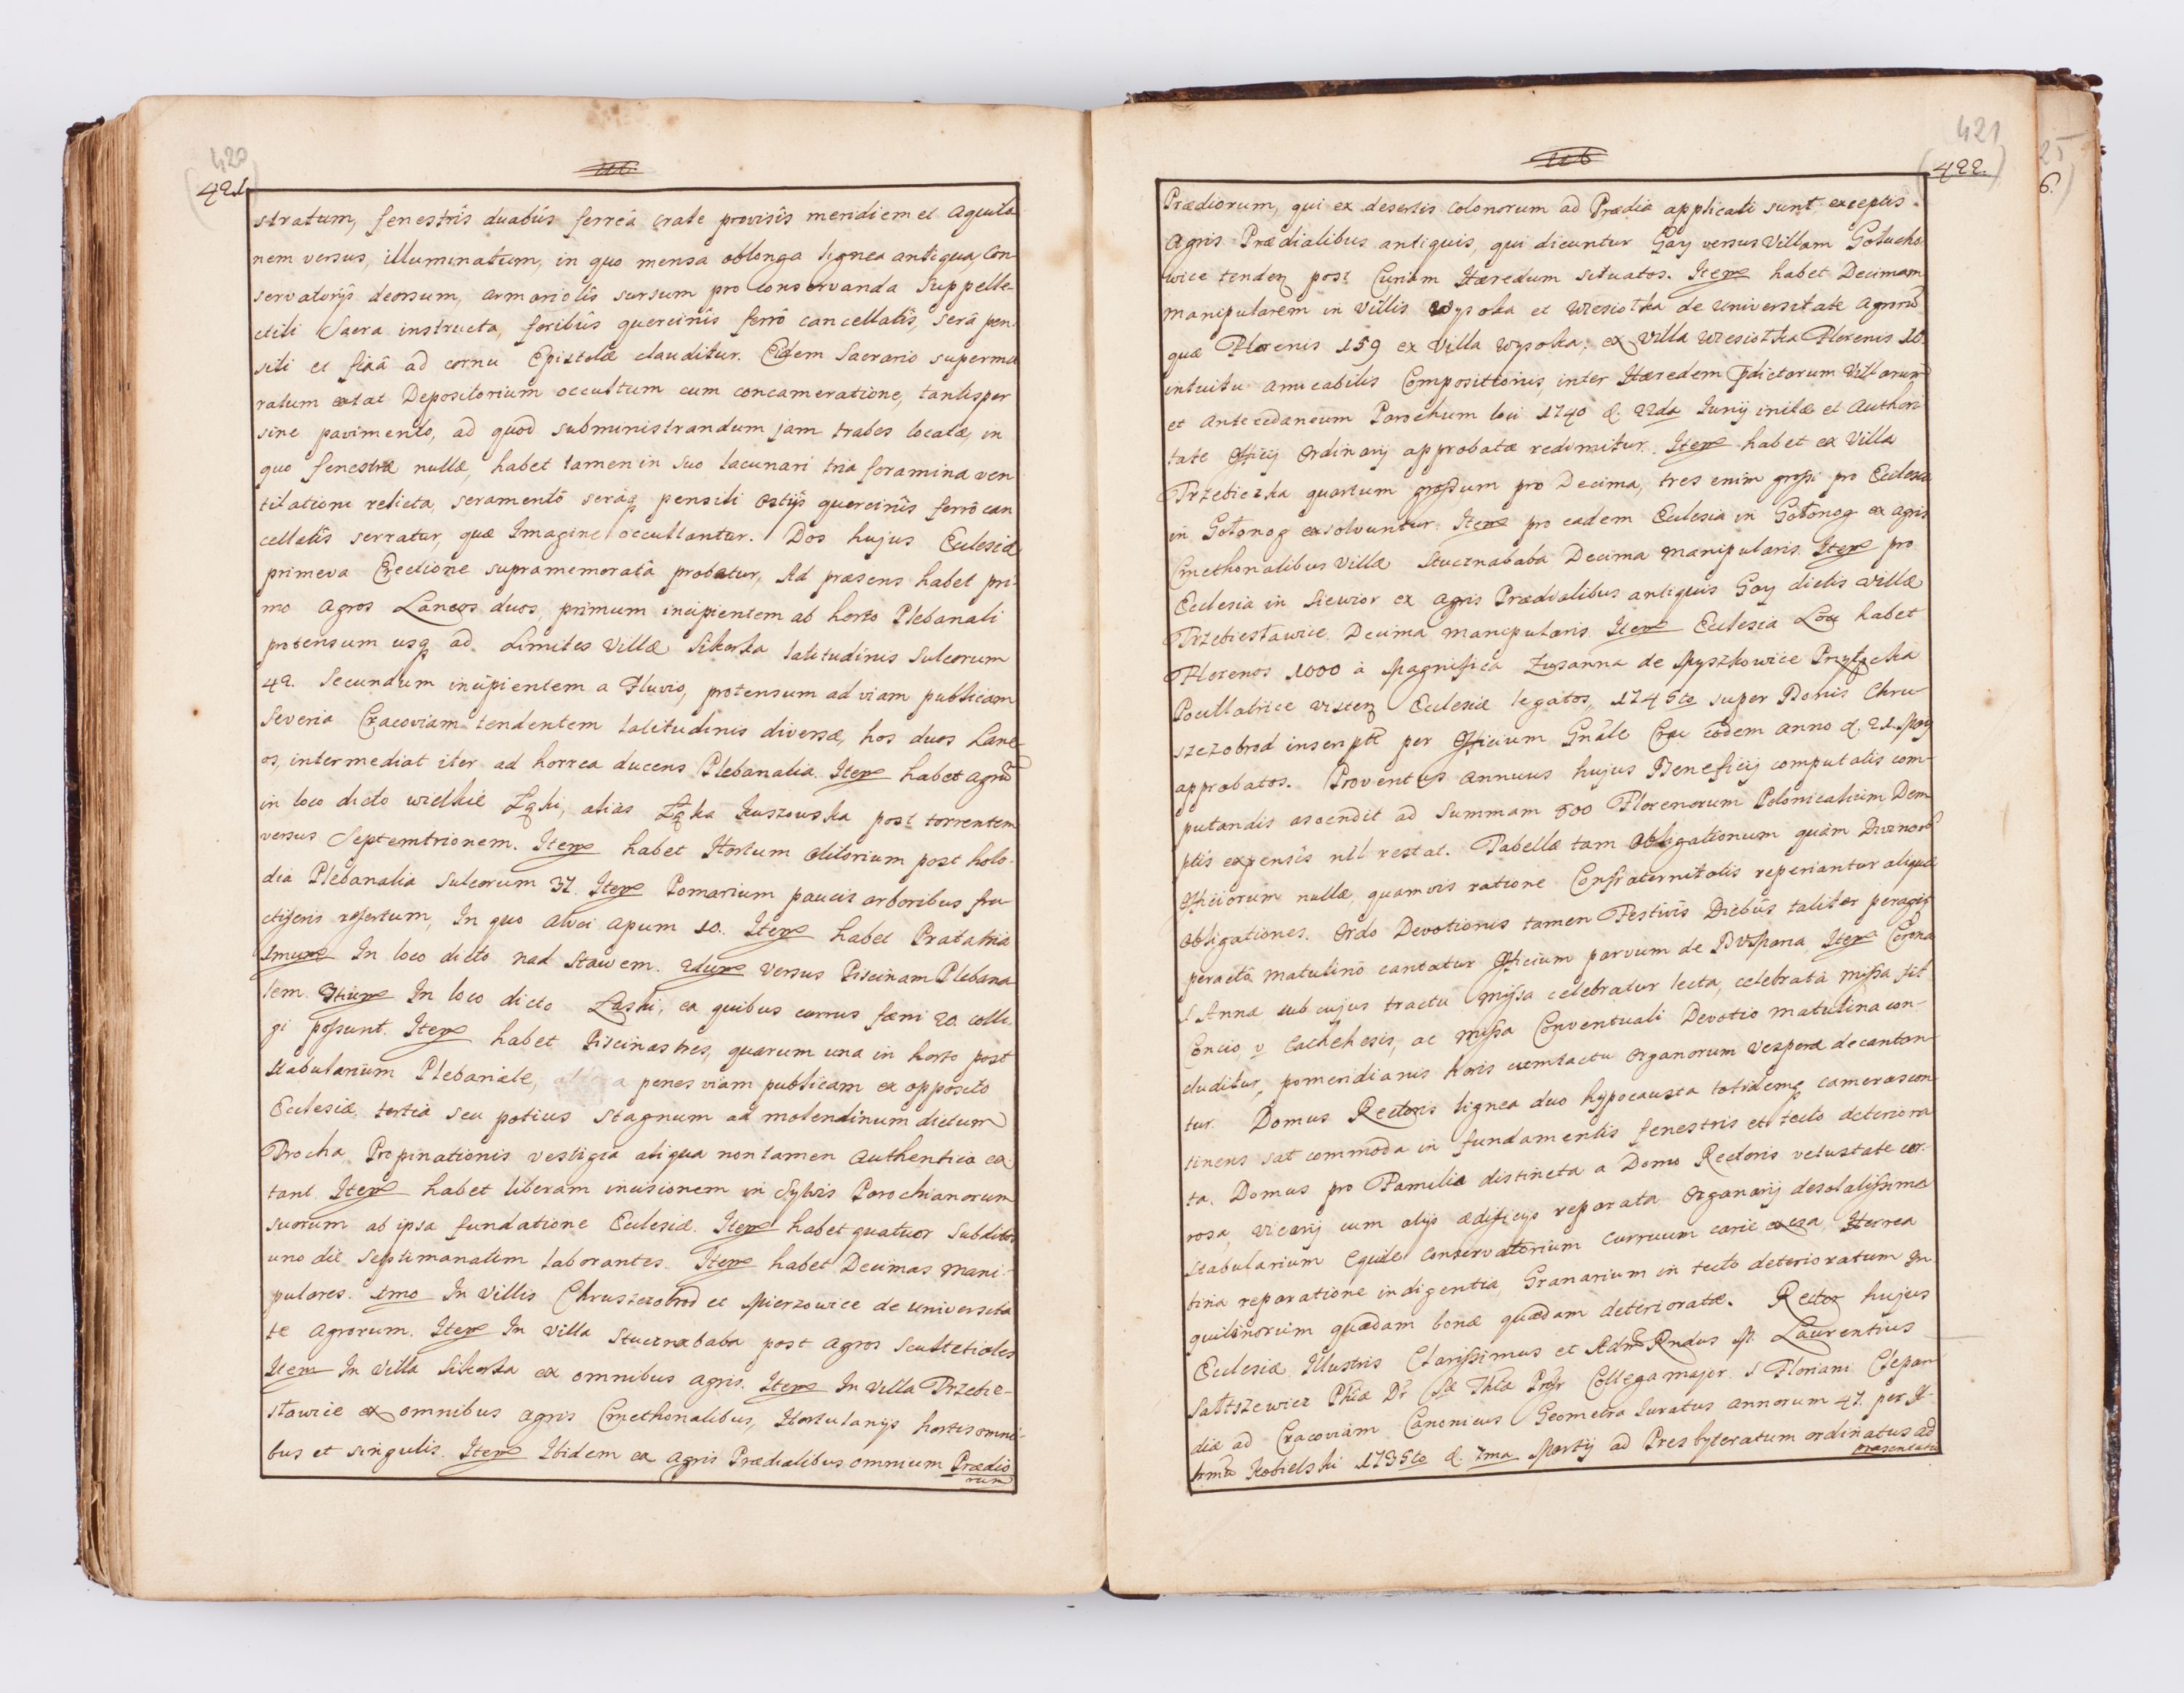 420
421
stratum, fenestris duabûs ferreâ crate provisîs meridiem et aquilo
nem versus, illuminatum, in quo mensa oblonga lignea antiqua, Con
servatorijs deorsum, armariolîs sursum pro conservanda Suppelle-
ctili Sacra instructa, foribûs quercinîs ferrô cancellatîs, serâ pen-
sili et fixâ ad cornu Epistolæ clauditur. Eidem Sacrario superma
ratum extat Depositorium occultum cum concameratione, tantisper
sine pavimento, ad quod subministrandum jam trabes locatæ, in
quo fenestræ nullæ, habet tamen in suo lacunari tria foramina ven
tilationi relicta, seramentô serâq pensili Ostijs quercinîs ferrô can
cellatîs serratur, quæ Imagine occultantur. Dos hujus Eclesiæ
primeva Erectione supramemoratâ probatur, Ad præsens habet pri-
mo Agros Laneos duos, primum incipientem ab horto Plebanali
protensum usq ad Limites Villæ Sikorka latitudinis Sulcorum
42. Secundum incipientem a Fluvio, protensum ad viam publicam
Severia Cracoviam tendentem latitudinis diversæ, hos duos Lane-
os, intermediat iter ad horrea ducens Plebanalia. Item habet agrũ
in loco dicto wielkie Łąki, alias Łąka Kuszowska post torrentem
versus Septemtrionem. Item habet Hortum Olitorium post holo-
dia Plebanalia Sulcorum 37. Item Pomarium paucis arboribus fru
ctiferis refertum, In quo alvei apum 10. Item habet Prata tria
1mum In loco dicto nad Stawem. 2dum versus Piscinam Plebana
lem. 3tium In loco dicto Łaski, ex quibus currus fæni 20 colli-
gi possunt. Item habet Piscinas tres, quarum una in horto post
stabularium Plebanale, altera penes viam publicam ex opposito
Eclesiæ, tertia seu potius Stagnum ad molendinum dictum
Procha Propinationis vestigia aliqua non tamen Authentica ex
tant. Item habet liberam incisionem in Sylvis Parochianorum
suorum ab ipsa fundatione Eclesiæ. Item habet quatuor Subditos
uno die Septimanatim laborantes. Item habet Decimas Mani-
pulares. 1mo In Villis Chruszczobrod et Mierzowice de universita
te Agrorum. Item In Villa Stucznababa post Agros Scultetiales
Item In Villa Sikorka ex omnibus agris. Item In Villa Przebie-
sławice ex omnibus agris Cmethonalibus, Hortulanijs hortis omni-
bus et singulis. Item Ibidem ex Agris Prædialibus omnium Prædio
rum
421
422.
Prædiorum, qui ex desertis Colonorum ad Prædia applicati sunt, exceptis
Agris Prædialibus antiquis, qui dicuntur Gay versus Villam Gołucho
wice tenden post Curiam Hæredum situatos. Item habet Decimam
manipularem in Villis Wysoka et Wiesiołka de Universitate Agrorũ
quæ Florenis 159 ex Villa Wysoka; ex Villa Wiesiołka Florenis 10.
intuitu amicabilis Compositionis, inter Hæredem pdictorum Villarum
et Antecedaneum Parochum loci 1740 d. 22da Junij initæ et Authori
tate Officij Ordinarij approbatæ redimitur. Item habet ex Villa
Trzebiczka quartum grossum pro Decima, tres enim grossi pro Eclesia
in Gołonog exsolvuntur. Item pro eadem Eclesia in Gołonog ex agris
Cmethonalibus Villæ Stucznababa Decima manipularis. Item pro
Eclesia in Siewior ex agris Prædialibus antiquis Gay dictis Villæ
Przebiesławice Decima manipularis. Item Eclesia Loci habet
Florenos 1000 à Magnifica Zusanna de Myszkowice Przyłęcka
Pocillatrice Visten Eclesiæ legatos, 1745to super Bonis Chru
szczobrod inscriptẽ per Officium Gñale Crac eôdem anno d. 21. May
approbatos. Proventus annuus hujus Beneficij computatis com-
putandis ascendit ad Summam 500 Florenorum Polonicalium Dem
ptis expensis nil restat. Tabellæ tam Obligationum quàm Divinorũ
Officiorum nullæ, quamvis ratione Confraternitatis reperiantur aliquæ
Obligationes. Ordo Devotionis tamen Festivîs Diebûs taliter peragit
peractô matutinô cantatur Officium parvum de BVMaria, Item Corona
S Annæ sub cujus tractu Missa celebratur lecta, celebratâ missa fit
Concio v Cathehesis, ac missa Conventuali Devotio matutina con-
cluditur, pomeridianis horis cum tactu Organorum Vesperæ decantan
tur. Domus Rectoris lignea duo hypocausta totidemq cameras con
tinens sat commoda in fundamentis fenestris et tecto deteriora
ta. Domus pro Familia distincta a Domo Rectoris vetustate cor-
rosa, Vicarij cum alijs ædificijs reparata Organarij desolatissima
stabularium Equile Conservatorium Curruum carie exesa, Horrea
bina reparatione indigentia, Granarium in tecto deterioratum In
quilinorum quædam bonæ quædam deterioratæ. Rector hujus
Eclesiæ Illustris Clarissimus et Admd Rndus M. Laurentius
Saltszewicz Phiæ Dr Sæ Thlæ Prfsr Collega major S Floriani Clepar
diæ ad Cracoviam Canonicus Geometra Juratus annorum 47. per Il-
lrmũ Kobielski 1735to d. 7ma Martij ad Presbyteratum ordinatus ad
præsentatio